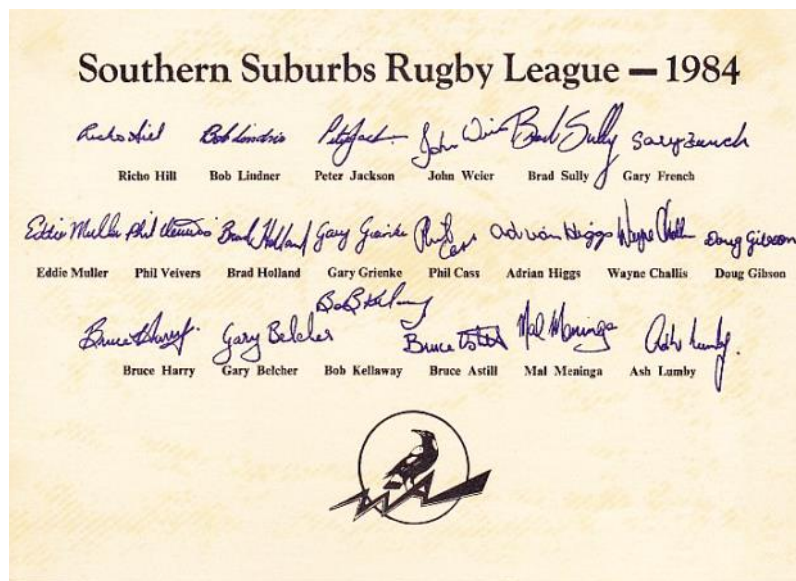 Southern Suburbs Rugby League — 1984
Richo Hill Bob Lindner Peter Jack John Weier Brad Sully Gary French
Richo Hill Bob Lindner Peter Jackson John Weier Brad Sully Gary French
Eddie Muller Phil Veivers Brad Holland Gary Grienke Phil Cass Adrian Higgs Wayne Challis Doug Gibson
Eddie Muller Phil Veivers Brad Holland Gary Grienke Phil Cass Adrian Higgs Wayne Challis Doug Gibson
Bob Kellaway
Bruce Harry Gary Belcher Bruce Astill Mal Meninga Ash Lumby
Bruce Harry Gary Belcher Bob Kellaway Bruce Astill Mal Meninga Ash Lumby